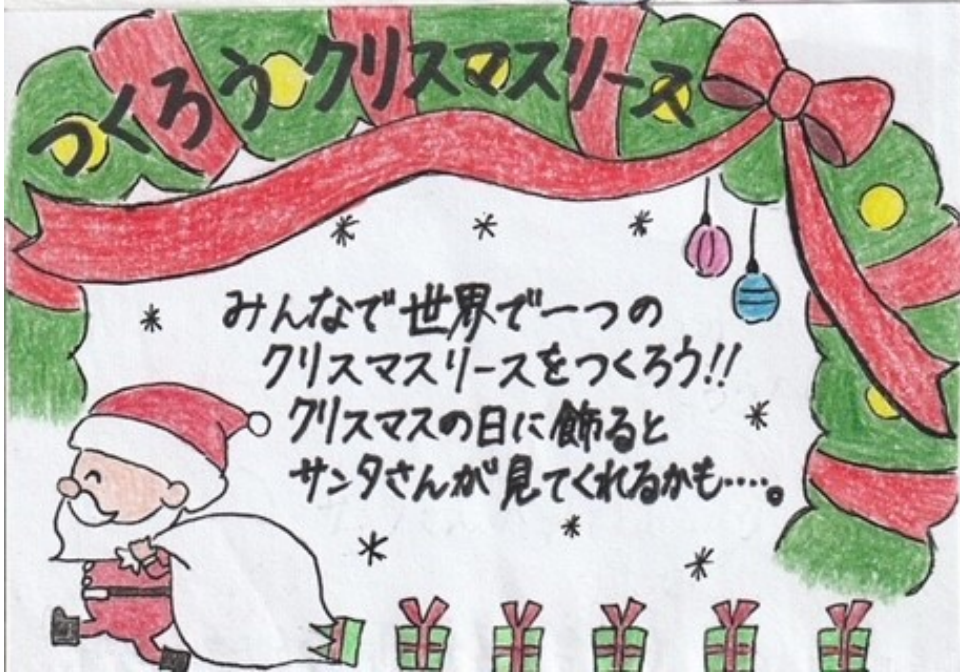 つくろうクリスマスリース
みんなで世界で一つの
クリスマスリースをつくろう!!
クリスマスの日に飾ると
サンタさんが見てくれるかも……。